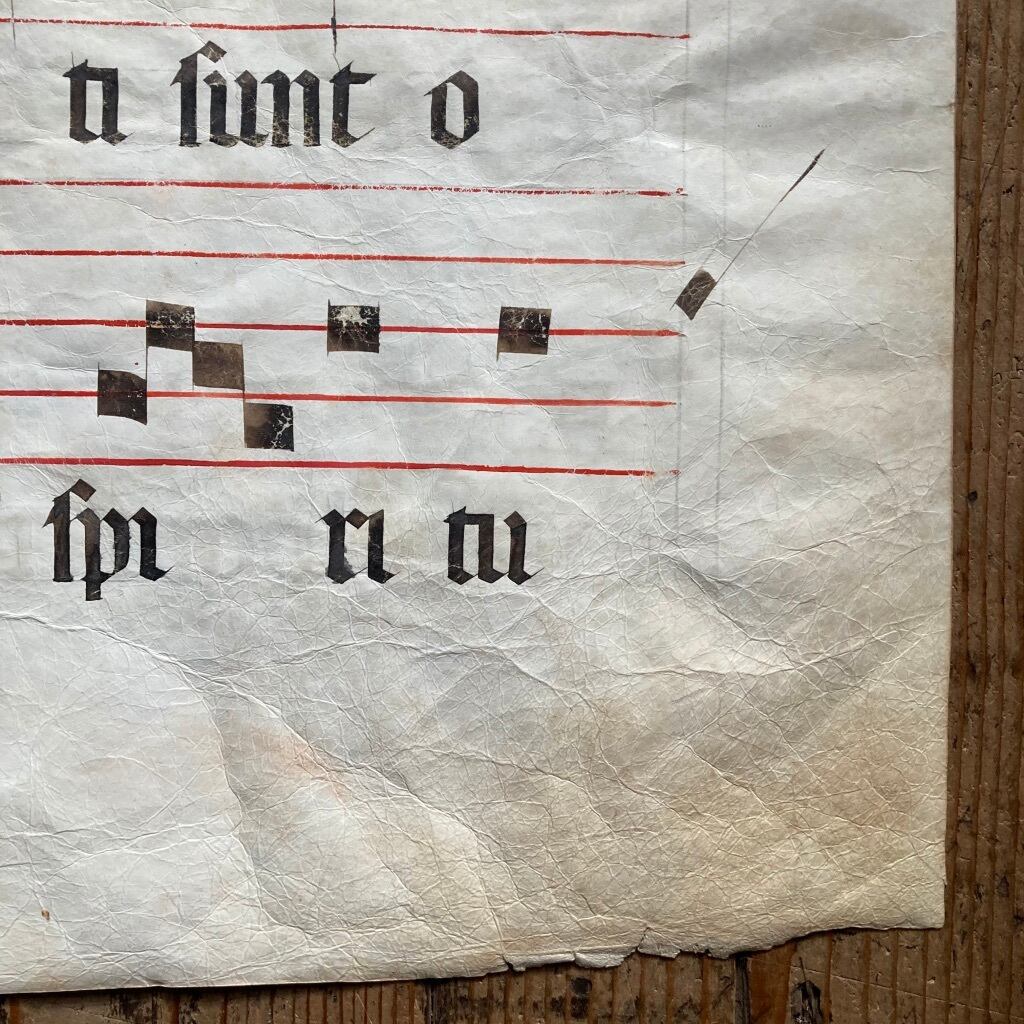 ti ſunt o
ſpi ri tu